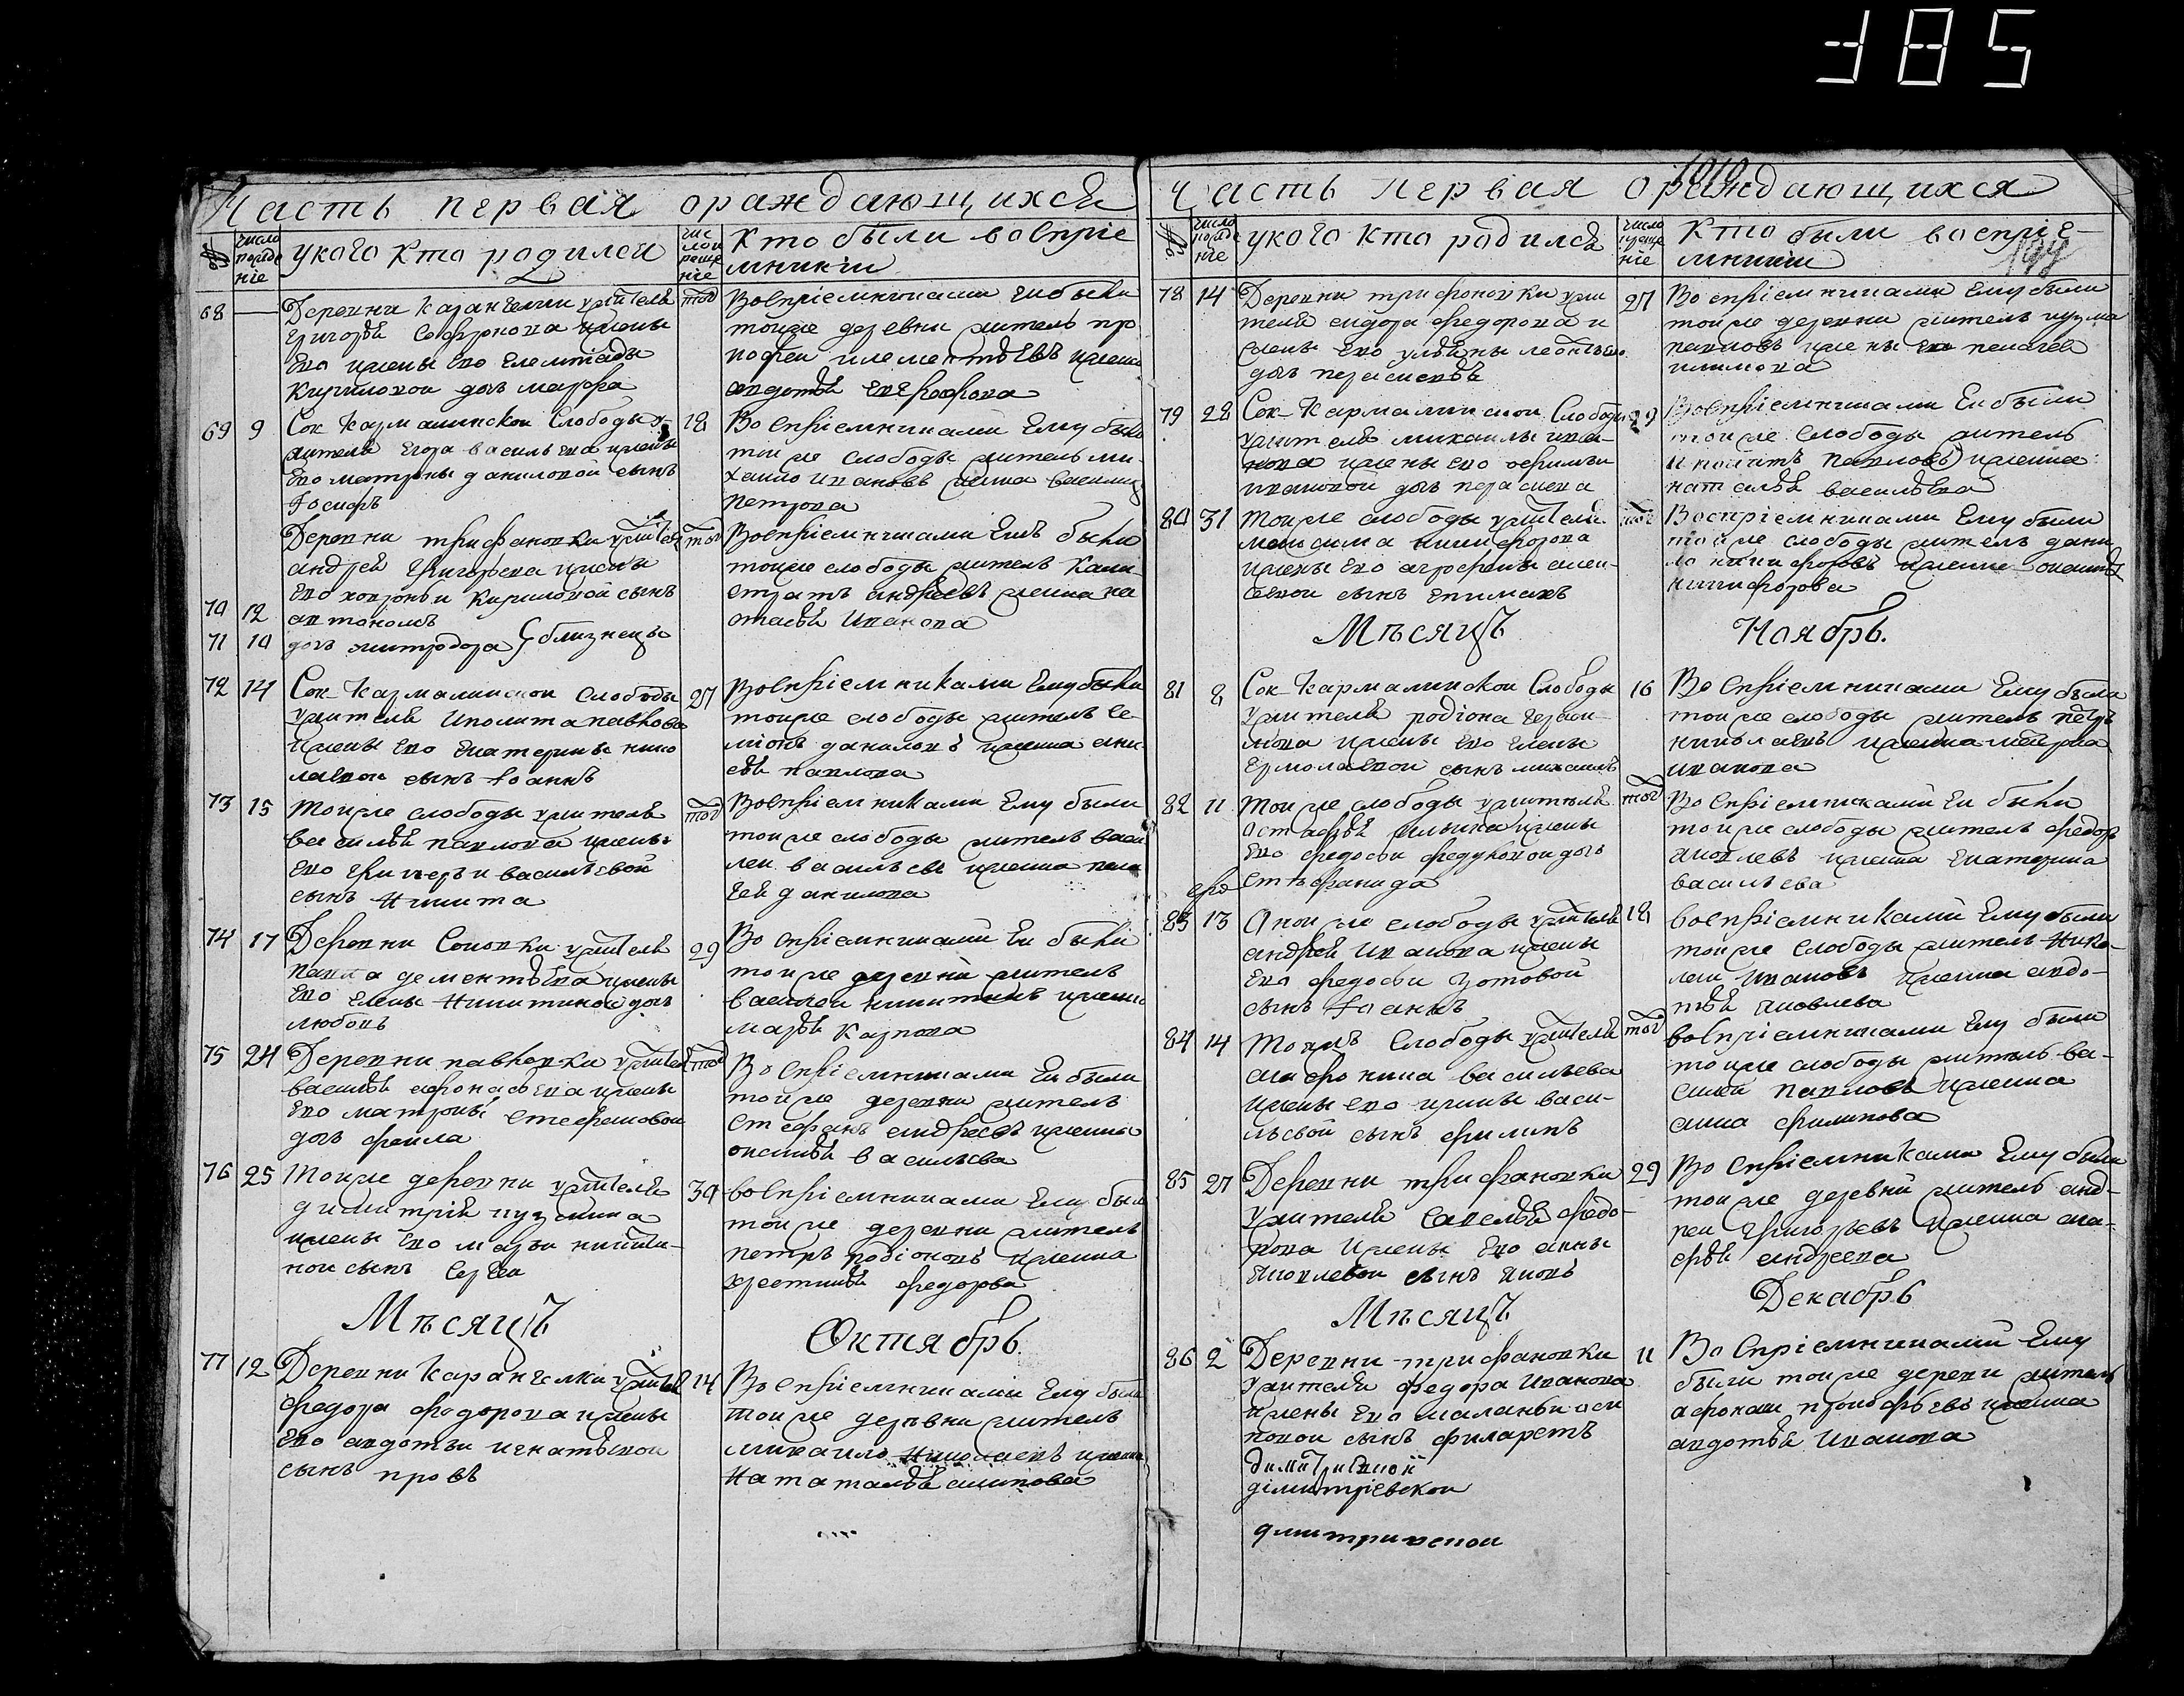 385
Часть первая ораждающихся
№
число рожде ніе
укого кто родился
чис лои креще ніе
Кто были воспріе
мники
68
Деревни каран елги жителя
Григорья Софронова жены
Его жены Его Елемпіады
Кириловой дочь марфа
тог
Воспріемниками Ей были
тоиже деревни житель про
кофеи клементьевъ жена
авдотья
69 9
Сок Кармалинской Слободы
жителя Егора васильева жены
Его матроны даниловой сынъ
Іосифъ
18
Воспріемниками Ему были
тоиже слободы житель ми-
хаило ивановъ жена василиса
петрова
Деревни трифановки жителя
андрея Григорьева жены
Его хавроньи Кириловой сынъ
70 12
автономъ
71 10
дочь митродора близнецы
тог
Воспріемниками Емъ были
тоиже слободы житель Кали-
стратъ андреевъ жена на
стасья Иванова
72 14
Сок Кармалинской Слободы
жителя Иполита павлова
жены Его Екатерины нико
лаевой сынъ Іоаннъ
27
Воспріемниками Ему были
тоиже слободы житель се-
міонъ даниловъ жена ани
сья павлова
73 15
тоиже слободы жителя
василья павлова жены
Его Гликерьи васильевой
сынъ Никита
тог
Воспріемниками Ему были
тоиже слободы житель васи
леи васильевъ жена пела
гея данилова
74 17
Деревни Соковки жителя
павла дементьева жены
Его Елены Никитиной дочь
любовь
29
Воспріемниками Ей были
тоиже деревни житель
василеи никитинъ жена
марья Карпова
75 24
Деревни павловки жителя
василья афонасьева жены
Его матроны стефановой
дочь фаила
тог
Воспріемниками Ей были
тоиже деревни житель
стефанъ андреевъ жена
аксинья васильева
76 25
тоиже деревни жителя
димитрія кузмина
жены Его марьи никити-
нои сынъ Сергеи
30
воспріемниками Ему были
тоиже деревни житель
петръ родіоновъ жена
крестинья федорова
Мѣсяцъ
Октябрь.
77 12
Деревни каран елки жителя
федора федорова жены
Его авдотьи игнатьевой
сынъ провъ
14
Воспріемниками Ему были
тоиже деревни житель
михаило Николаевъ жена
Наталья
Часть первая ораждающихся
1010
199
№
число рожде ніе
укого кто родился
число креще ніе
Кто были воспріе-
мники
78 14
Деревни трифоновки жи
теля сидора федорова и
жены Его ульяны леонтьево
дочь параскевья
27
Воспріемниками Ему были
тоиже деревни житель кузма
павловъ жены Его пелагея
климова
79 28
Сок Кармалинскои Слободы
жителя михаилы ива-
нова жены Его ефимьи
ивановой дочь параскева
29
Воспріемниками Ей были
тоиже слободы житель
иполитъ павловъ жена
наталья васильева
80 31
тоиже слободы жителя
максима никифорова
жены Его агрофены алек-
сеевой сынъ Епимахъ
тог
Воспріемниками Ему были
тоиже слободы житель дани
ло никифоровъ жена аксинья
никифорова
Мѣсяцъ
Ноябрь.
81 8
Сок Кармалинскои Слободы
жителя родіона гераси-
мова жены Его Елены
Ермолаевой сынъ михаилъ
16
Воспріемниками Ему были
тоиже слободы житель петръ
николаевъ жена мавра
иванова
82 11
тоиже слободы жителя
остафья ильина жены
Его федосьи федуловой дочь
стефанида
тог
Воспріемниками Ей были
тоиже слободы житель федоръ
яковлевъ жена Екатерина
васильева
83 13
Аноиже слободы жителя
андрея Иванова жены
Его федосьи Зотовой
сынъ Іоаннъ
18
воспріемниками Ему были
тоиже слободы житель Нико-
леи Ивановъ жена авдо-
тья яковлева
84 14
тоижъ Слободы жителя
агафоника васильева
жены его ирины васи-
льевой сынъ филипъ
тог
воспріемниками Ему были
тоиже слободы житель ва-
силеи павловъ жена
анна филипова
85 27
Деревни трифановки
жителя савелья федо-
рова жены Его анны
яковлевой сынъ яковъ
29
Воспріемниками Ему были
тоиже деревни житель анд-
реи Григорьевъ жена ага-
фья андреева
Мѣсяцъ
Декабрь
86 2
Деревни трифановки
жителя федора Иванова
жены Его маланьи оси
повои сынъ филаретъ
11
Воспріемниками Ему
были тоиже деревни житель
афонаси прокофьевъ жена
авдотья Иванова
дімитріевскои
дмитриевскои